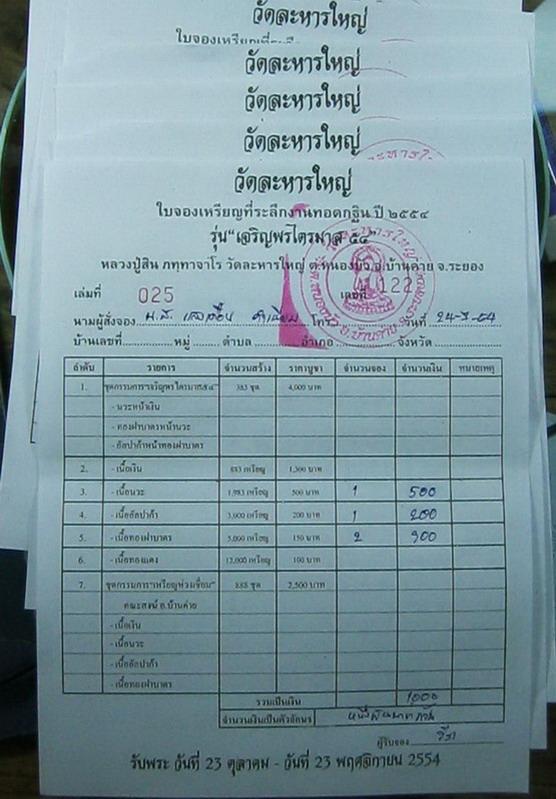 วัดละหารใหญ่
ใบจองเหรียญที่ระลึก
วัดละหารใหญ่
วัดละหารใหญ่
วัดละหารใหญ่
วัดละหารใหญ่
ใบจองเหรียญที่ระลึกงานทอดกฐิน ปี ๒๕๕๔
รุ่น"เจริญพรไตรมาส ๕๔"
หลวงปู่สิน ภทฺทาจาโร วัดละหารใหญ่ ต.หนองบัว อ.บ้านค่าย จ.ระยอง
เล่มที่ 025 เลขที่ 1221
นามผู้สั่งจอง โทร วันที่ 24-9-54
บ้านเลขที่ หมู่ ตำบล อำเภอ จังหวัด
ลำดับ รายการ จำนวนสร้าง ราคาบูชา จำนวนจอง จำนวนเงิน หมายเหตุ
1. ชุดกรรมการ"เจริญพรไตรมาส๕๔" 383 ชุด 4,000 บาท
- นวะหน้าเงิน
- ทองฝาบาตรหน้านวะ
- อัลปาก้าหน้าทองฝาบาตร
2. - เนื้อเงิน 883 เหรียญ 1,300 บาท
3. - เนื้อนวะ 1,983 เหรียญ 500 บาท 1 500
4. - เนื้ออัลปาก้า 3,000 เหรียญ 200 บาท 1 200
5. - เนื้อทองฝาบาตร 5,000 เหรียญ 150 บาท 2 300
6. - เนื้อทองแดง 12,000 เหรียญ 100 บาท
7. ชุดกรรมการ"เหรียญห่วงเชื่อม" 888 ชุด 2,500 บาท
คณะสงฆ์ อ.บ้านค่าย
- เนื้อเงิน
- เนื้อนวะ
- เนื้ออัลปาก้า
- เนื้อทองฝาบาตร
รวมเป็นเงิน 1000
จำนวนเงินเป็นตัวอักษร หนึ่งพันบาทถ้วน
ผู้รับจอง
รับพระ วันที่ 23 ตุลาคม - วันที่ 23 พฤศจิกายน 2554